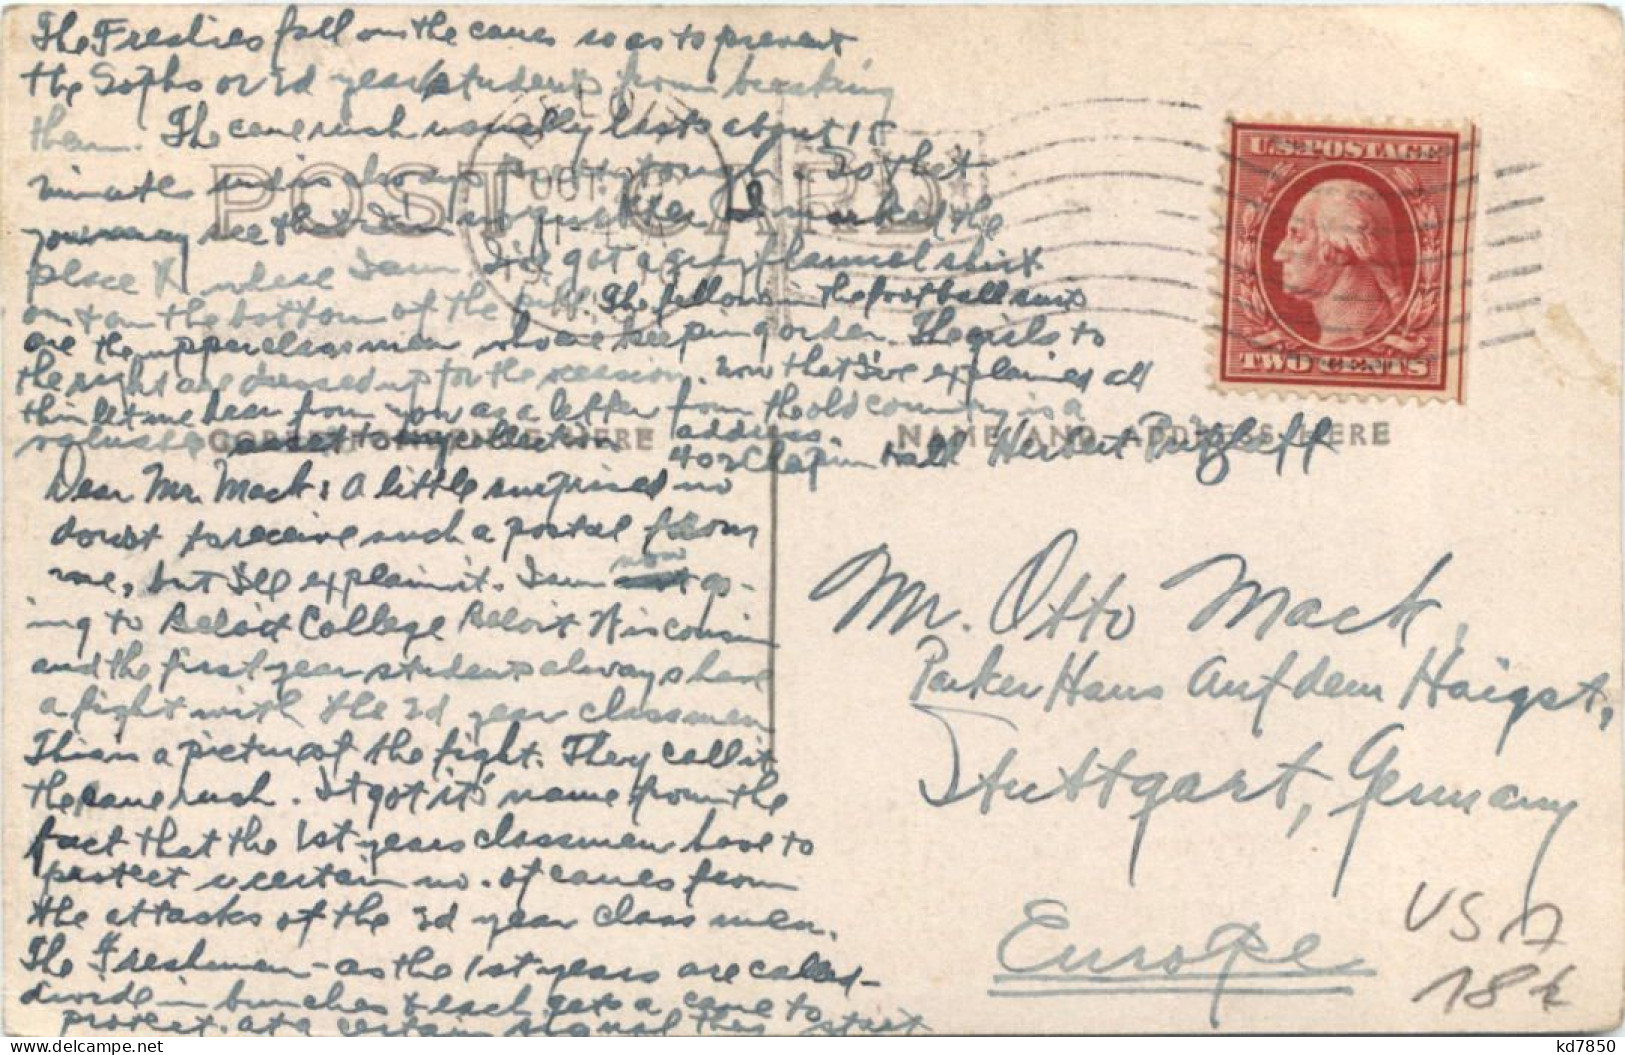 The Freshies fall on the canes so as to prevent
the Sophs or 2d year students from breaking
them. The cane rush usually lasts about 15
minutes and is always pretty rough. So that
you may see that I'm no quitter I marked the
place X where I am. I've got a gray flannel shirt
on & am the bottom of the pile. The fellows in the football suits
are the upperclassmen who are keeping order. The girls to
the right are dressed up for the occasion. Now that I've explained all
this let me hear from you as a letter from the old country is a
valuable asset to my collection address
402 Chapin Hall Herbert
POST CARD
BELOIT
OCT
U.S. POSTAGE
TWO CENTS
CORRESPONDENCE HERE
NAME AND ADDRESS HERE
Dear Mr. Mack: A little surprised no
doubt to receive such a postal from
me, but I'll explain it. I am now go-
ing to Beloit College Beloit Wisconsin
and the first year students always have
a fight with the 2d year classmen
This is a picture of the fight. They call it
the cane rush. It got it's name from the
fact that the 1st years classmen have to
protect a certain no. of canes from
the attacks of the 2d year class men.
The "Freshmen - as the 1st years are called -
divide in bunches & each gets a cane to
protect. At a certain signal they start
Mr. Otto Mack,
Parker Haus Auf dem Haigst,
Stuttgart, Germany
Europe
USA
18
kd7850